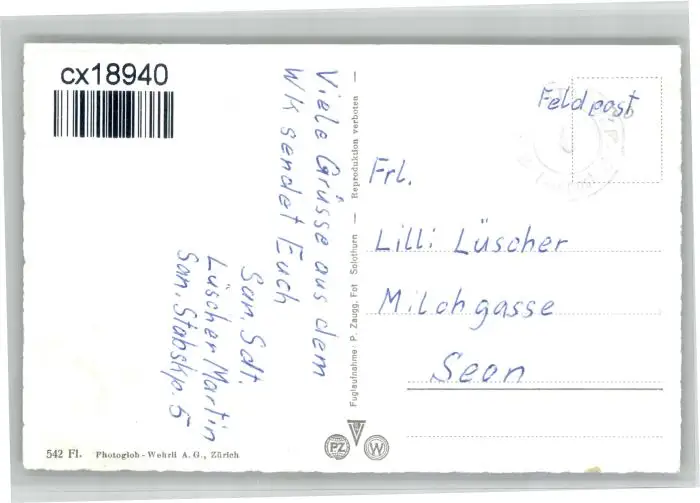 cx18940
Viele Grüsse aus dem
WK sendet Euch
San. Sdt.
Lüscher Martin
San. Stabskp. 5
Fuglaufnahme: P. Zaugg, Fot Solothurn — Reproduktion verboten —
Feldpost
Frl.
Lilli Lüscher
Milchgasse
Seon
PZ
W
542 Fl. Photoglob - Wehrli A. G., Zürich